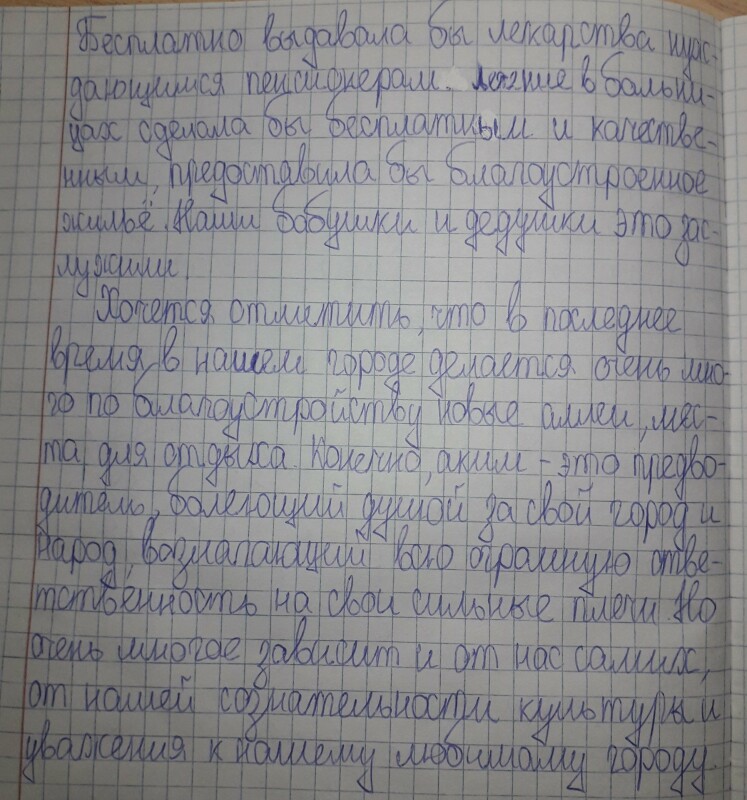 Бесплатно выдавала бы лекарства нуж-
дающимся пенсионерам. Лечение в больни-
цах сделала бы бесплатным и качестве-
нным, предоставила бы благоустроенное
жильё. Наши бабушки и дедушки это зас-
лужили.
Хочется отметить, что в последнее
время, в нашем городе делается очень мно-
го по благоустройству новые аллеи, мес-
та для отдыха. Конечно, аким - это предво-
дитель, болеющий душой за свой город и
народ, возлагающий всю огромную отве-
тственность на свои сильные плечи. Но
очень многое зависит и от нас самих,
от нашей сознательности культуры и
уважения к нашему любимому городу.